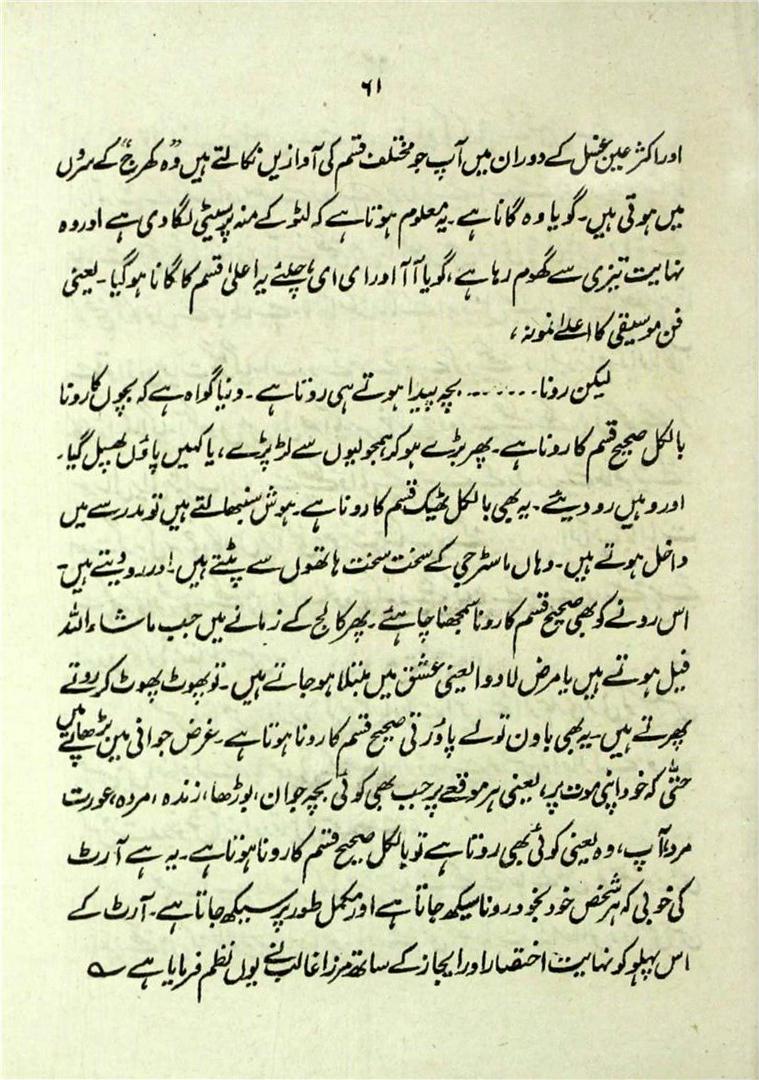 ۶۱
اور اکثر عین غسل کے دوران میں آپ جو مختلف قسم کی آوازیں نکالتے ہیں وہ "کھرج" کے سروں
میں ہوتی ہیں۔ گویا وہ گانا ہے۔ یہ معلوم ہوتا ہے کہ لٹو کے منہ پر سیٹی لگا دی ہے اور وہ
نہایت تیزی سے گھوم رہا ہے، گویا آ آ اور ای ای، چلئے یہ اعلیٰ قسم کا گانا ہو گیا۔ یعنی
فن موسیقی کا اعلےٰ نمونہ،
لیکن رونا....... بچہ پیدا ہوتے ہی روتا ہے۔ دنیا گواہ ہے کہ بچوں کا رونا
بالکل صحیح قسم کا رونا ہے۔ پھر بڑے ہو کر ہمجولیوں سے لڑ پڑے، یا کہیں پاؤں پھسل گیا۔
اور وہیں رو دیئے۔ یہ بھی بالکل ٹھیک قسم کا رونا ہے۔ ہوش سنبھالتے ہیں تو مدرسے میں
داخل ہوتے ہیں۔ وہاں ماسٹر جی کے سخت سخت ہاتھوں سے پٹتے ہیں۔ اور رو دیتے ہیں۔
اس رونے کو بھی صحیح قسم کا رونا سمجھنا چاہئے۔ پھر کالج کے زمانے میں جب ماشاء اللہ
فیل ہوتے ہیں یا مرض لادوا یعنی عشق میں مبتلا ہو جاتے ہیں۔ تو پھوٹ پھوٹ کر روتے
پھرتے ہیں۔ یہ بھی باون تولے پاؤ رتی صحیح قسم کا رونا ہوتا ہے۔ غرض جوانی میں بڑھاپے میں
حتیٰ کہ خود اپنی موت پر، یعنی ہر موقعے پر جب بھی کوئی بچہ جوان، بوڑھا، زندہ، مردہ، عورت
مرد، آپ، وہ یعنی کوئی بھی روتا ہے تو بالکل صحیح قسم کا رونا ہوتا ہے۔ یہ ہے آرٹ
کی خوبی کہ ہر شخص خود بخود رونا سیکھ جاتا ہے اور مکمل طور پر سیکھ جاتا ہے۔ آرٹ کے
اس پہلو کو نہایت اختصار اور ایجاز کے ساتھ مرزا غالب نے یوں نظم فرمایا ہے ؎